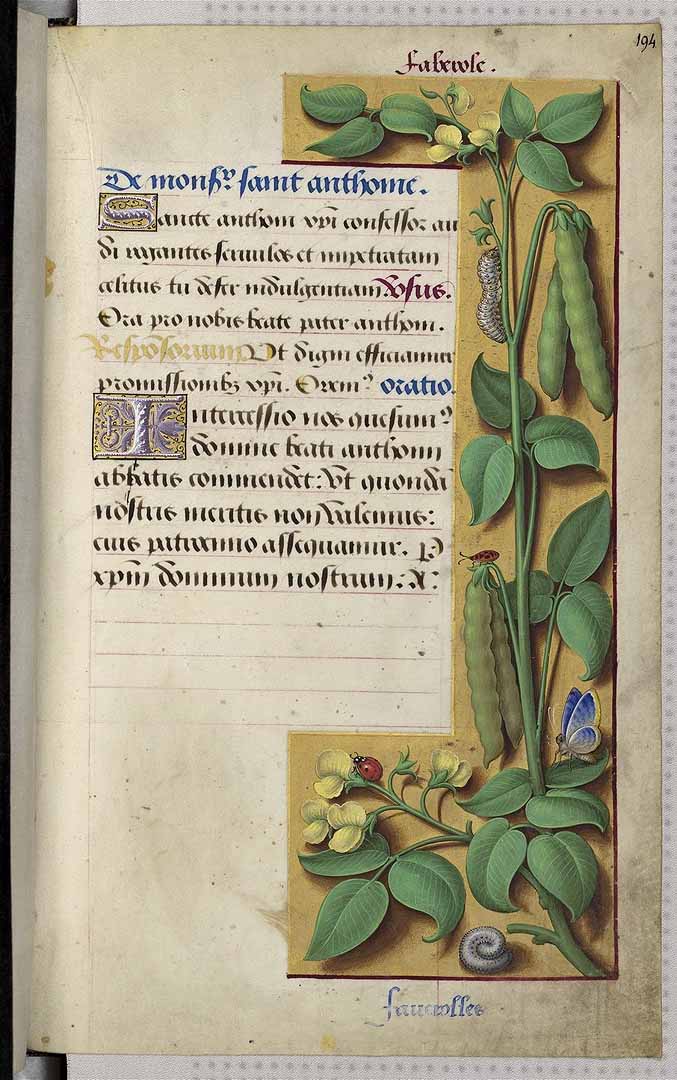 194
Faberole.
De monsr saint anthoine.
Sancte anthoni xpi confessor au
di rogantes seruulos et impetratam
celitus tu defer indulgentiam. Vsus.
Ora pro nobis beate pater anthoni.
Responsorium Vt digni efficiamur
promissionibꝫ xpi. Oremꝰ oratio.
Intercessio nos quesumꝰ
domine beati anthonii
abbatis commendet: Vt
nostris meritis non valemus:
eius patrocinio assequamur. P
xpm dominum nostrum: A:
fauerolles